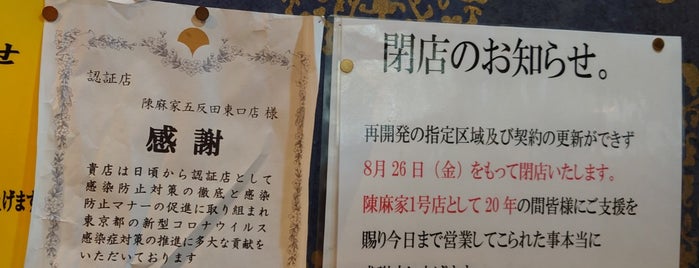 せ
げます
認証店
陳麻家五反田東口店 様
感謝
貴店は日頃から認証店として
感染防止対策の徹底と感染
防止マナーの促進に取り組まれ
東京都の新型コロナウイルス
感染症対策の推進に多大な貢献を
いただいております
閉店のお知らせ。
再開発の指定区域及び契約の更新ができず
8月26日（金）をもって閉店いたします。
陳麻家1号店として20年の間皆様にご支援を
賜り今日まで営業してこられた事本当に